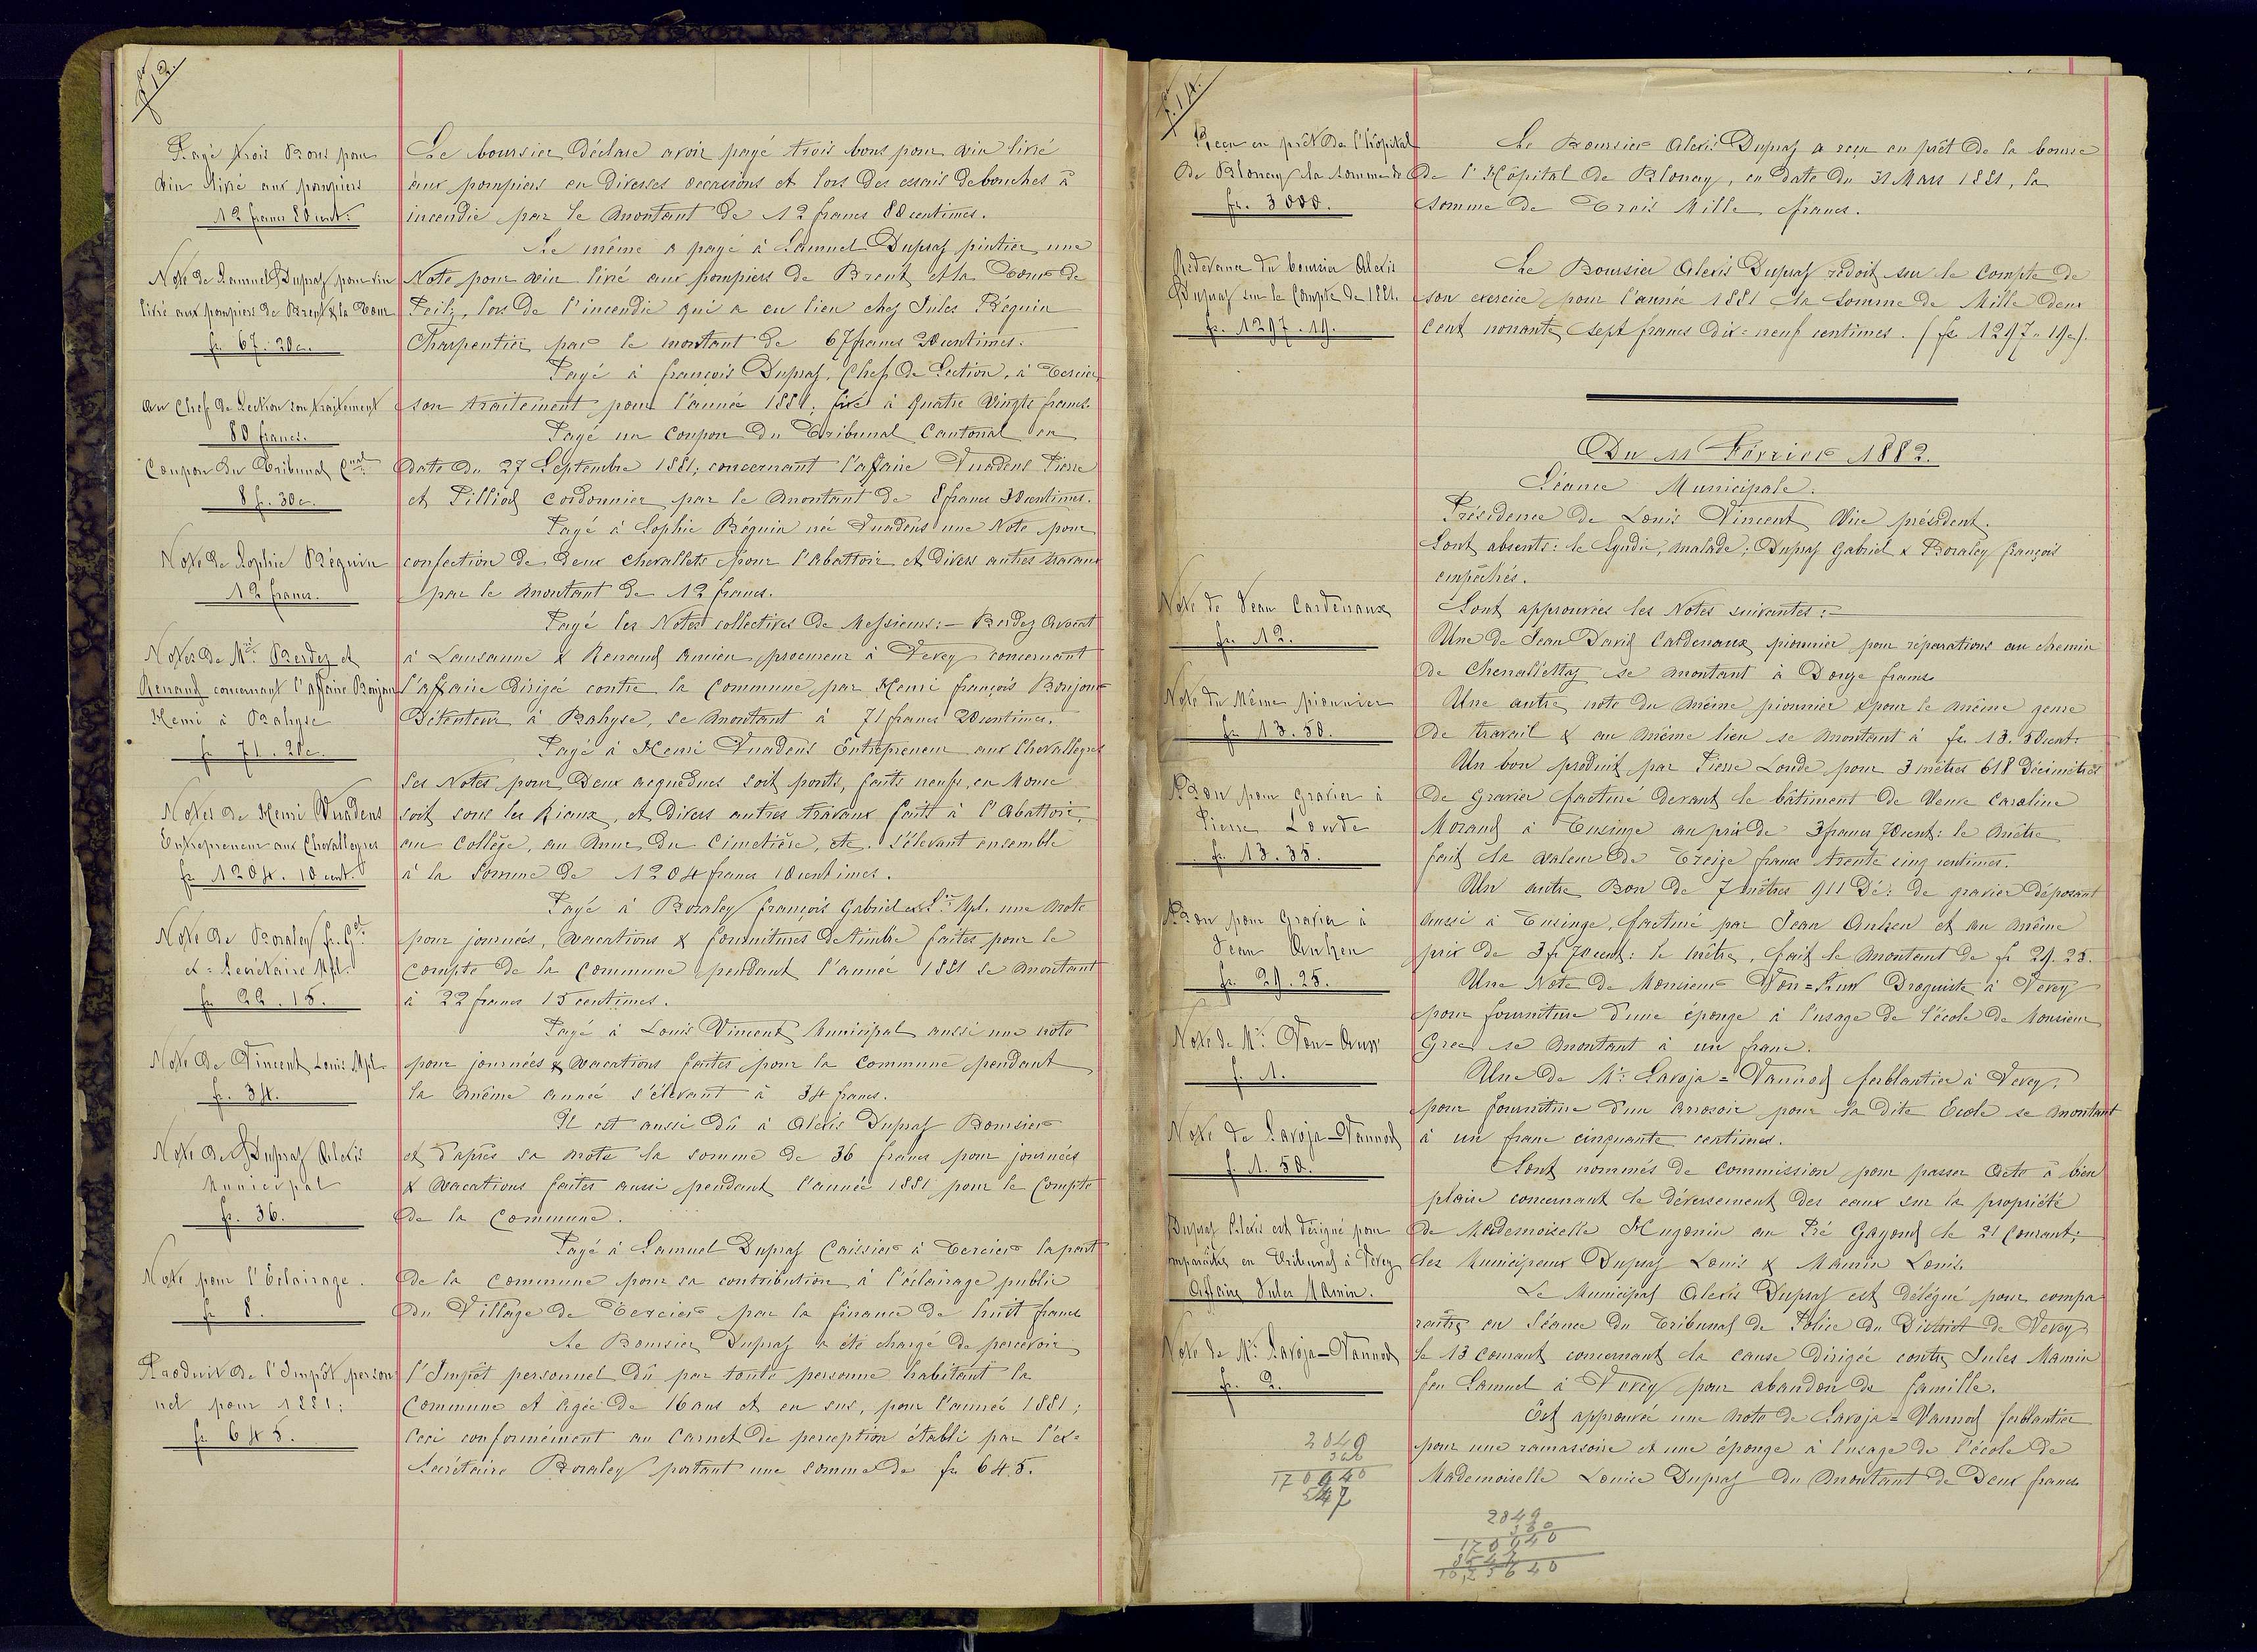 fo 13.
Payé trois Bons pour
vin livré aux pompiers
12 francs 80 cent:
Le boursier Déclare avoir payé trois bons pour vin livré
aux pompiers en Diverses occasions et lors des essais de bouches à
incendie par le montant de 12 francs 80 centimes.
Note de Samuel Dupraz pour vin
livré aux pompiers de Brent & la Tour
fr. 67. 20 c.
Le même a payé à Samuel Dupraz pintier une
Note pour vin livré aux pompiers de Brent et la Tour de
Peilz, lors de l'incendie qui a eu lieu chez Jules Béguin
Charpentier par le montant de 67 francs 20 centimes.
Au Chef de Section son traitement
80 francs.
Payé à françois Dupraz, Chef de Section, à Tercier
son traitement pour l'année 1881, fixé à Quatre Vingts francs.
Coupon du Tribunal Cnal
8 fr. 30 c.
Payé un Coupon du Tribunal Cantonal en
date du 27 Septembre 1881, concernant l'affaire Vuadens Pierre
et Pilliod Cordonnier par le montant de 8 francs 30 centimes.
Note de Sophie Béguin
12 francs.
Payé à Sophie Béguin née Vuadens une Note pour
confection de deux chevallets pour l'abattoir et divers autres travaux
par le montant de 12 francs.
Notes de Mrs Berdez et
Renaud concernant l'affaire Bonjour
Henri à Bahyse
fr. 71. 20 c.
Payé les Notes collectives de Messieurs:- Berdez Avocat
à Lausanne & Renaud ancien procureur à Vevey concernant
l'affaire dirigée contre la Commune par Henri françois Bonjour
Détenteur à Bahyse, se montant à 71 francs 20 centimes.
Notes de Henri Vuadens
Entrepreneur aux Chevalleyres
fr. 1204. 10 cent.
Payé à Henri Vuadens Entrepreneur aux Chevalleyres
Ses Notes pour Deux acqueducs soit ponts, faits neufs, en
soit sous les Riaux, et divers autres travaux faits à l'Abattoir,
au Collège, au mur du Cimetière, etc. S'élevant ensemble
à la Somme de 1204 francs 10 centimes.
Note de Boraley fr. Gel
ex = Secrétaire Mpl.
fr. 22. 15.
Payé à Boraley françois Gabriel ex Sre Mpl. une Note
pour journées, vacations & fournitures de timbre faites pour le
Compte de la Commune pendant l'année 1881 se montant
à 22 francs 15 centimes.
Note de Vincent Louis Mpl.
fr. 34.
Payé à Louis Vincent Municipal aussi une note
pour journées & vacations faites pour la Commune pendant
la même année s'élevant à 34 francs.
Note de Dupraz Alexis
Municipal
fr. 36.
Il est aussi dû à Alexis Dupraz Boursier
et d'après sa note la somme de 36 francs pour journées
& vacations faites aussi pendant l'année 1881 pour le Compte
de la Commune.
Note pour l'Eclairage.
fr 8.
Payé à Samuel Dupraz Caissier à Tercier la part
de la Commune pour sa contribution à l'éclairage public
du Village de Tercier par la finance de huit francs
Produit de l'Impôt person
nel pour 1881:
fr 645.
Le Boursier Dupraz a été chargé de percevoir
l'Impôt personnel Dû par toute personne habitant la
Commune et âgée de 16 ans et en sus, pour l'année 1881;
Ceci conformément au Carnet de perception établi par l'ex=
Secrétaire Boraley portant une somme de fr 645.
fo 14.
Reçu en prêt de l'hôpital
de Blonay la somme de
fr. 3000.
Le Boursier Alexis Dupraz a reçu en prêt de la bourse
de l'Hôpital de Blonay, en date du 31 Mars 1881, la
Somme de Trois Mille francs.
Redevance du boursier Alexis
Dupraz sur le Compte de 1881.
fr. 1297.19.
Le Boursier Alexis Dupraz redoit sur le Compte de
son exercice pour l'année 1881 la Somme de Mille deux
Cent nonante sept francs Dix-neuf centimes. (fr 1297"19 c).
Du 11 Février 1882.
Séance Municipale.
Présidence de Louis Vincent Vice président.
Sont absents: le Syndic, malade; Dupraz Gabriel & Boraley françois
empêchés.
Sont approuvées les Notes suivantes:-
Note de Jean Cardenaux
fr. 12.
Une de Jean David Cardenaux pionnier pour réparations au chemin
de Chenalettaz se montant à Douze francs
Note du Même pionnier
fr. 13.50.
Une autre note du même pionnier & pour le même genre
de travail & au même lieu se montant à fr. 13. 50 cent:
Bon pour Gravier à
Pierre Londe
fr. 13.35.
Un bon produit par Pierre Londe pour 3 mètres 618 Décimètres
de Gravier facturé devant le bâtiment de Veuve Caroline
Morand à Ensinge au prix de 3 francs 70 cent: le mètre
fait la valeur de Treize francs trente cinq centimes.
Bon pour Gravier à
Jean
fr. 29.25.
Un autre Bon de 7 mètres 911 Dé: de gravier déposant
aussi à Ensinge, facturé par Jean et au même
prix de 3 fr 70 cent: le mètre, fait le montant de fr 29.25.
Note de Mr.
fr. 1.
Une Note de Monsieur Droguiste à Vevey
pour fourniture d'une éponge à l'usage de l'école de Monsieur
se montant à un franc.
Note de Savoja-Vannod
fr. 1. 50.
Une de Mr. Savoja=Vannod ferblantier à Vevey,
pour fourniture d'un Arrosoir pour la dite Ecole se montant
à un franc cinquante centimes.
Sont nommés de Commission pour passer Acte à bien
plaire concernant le déversement des eaux sur la propriété
de Mademoiselle Hugonin au Pré Gayoud le 21 Courant:
les Municipaux Dupraz Louis & Mamin Louis.
Dupraz Alexis est désigné pour
comparaître en Tribunal à Vevey
Affaire Jules Mamin.
Le Municipal Alexis Dupraz est délégué pour compa
raître en Séance du Tribunal de Police du District de Vevey
le 13 Courant concernant la cause dirigée contre Jules Mamin
feu Samuel à Vevey pour abandon de famille.
Note de Mr. Savoja-Vannod
fr. 2.
Est approuvée une note de Savoja=Vannod ferblantier
pour une ramassoire et une éponge à l'usage de l'école de
Mademoiselle Louise Dupraz du montant de Deux francs
2849
360
170940
2849
360
170940